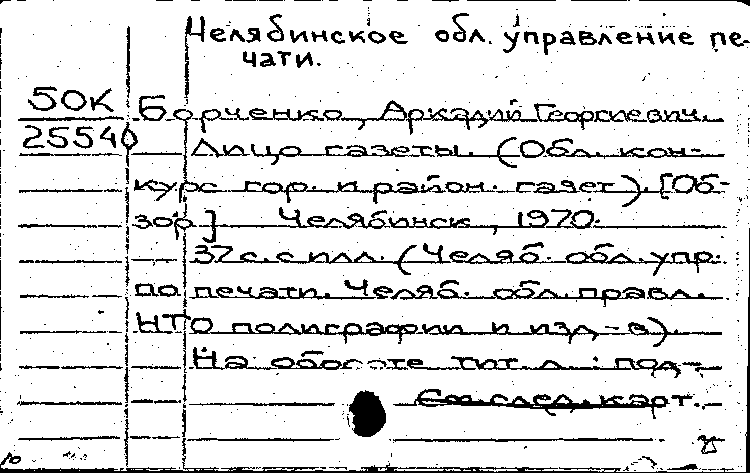 Челябинское обл. управление пе-
чати.
50К
25540
Борченко, Аркадий Георгиевич.
Лицо газеты. (Обл. кон-
курс гор. и район. газет). [Об-
зор] Челябинск, 1970.
37 с. с илл. (Челяб. обл. упр.
по печати. Челяб. обл. правл.
НТО полиграфии и изд-в).
На обороте тит. л.: под-
См. след. карт.